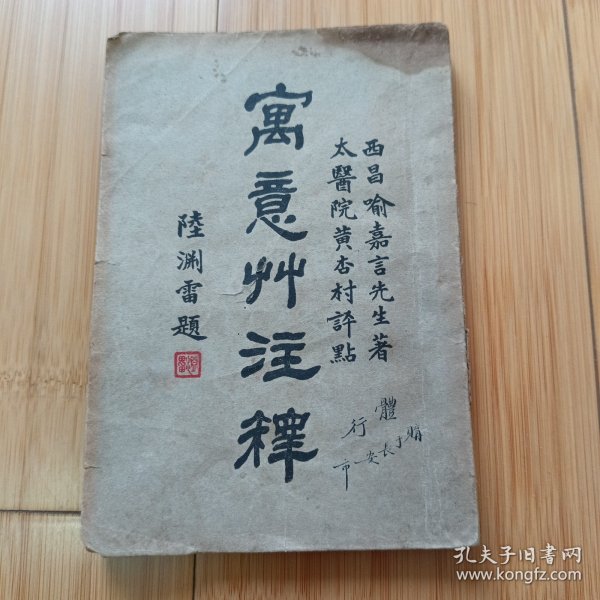 西昌喻嘉言先生著
太醫院黃杏村評點
寓意艸注釋
陸淵雷題
體行
購于長安市
孔夫子旧书网
www.kongfz.com